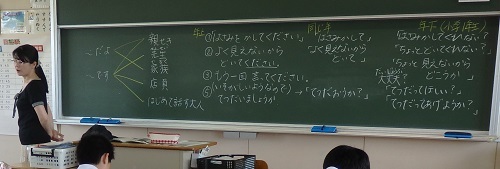 〜だよ
〜です
親せき
先輩
家族
店員
はじめて話す大人
①「はさみをかしてください。」
②「よく見えないから
どいてください。
③もう一回言ってください。
⑤
てつだいましょうか
同じ年
「はさみかして」
「よく見えないから
どいて」
→「てつだおうか?」
年下(小学1年生)
「はさみかしてくれない?」
「ちょっとどいてくれない?」
「ちょっと見えない
どこうか」
「大丈夫?
「てつだってほしい?」
「てつだってあげようか?」